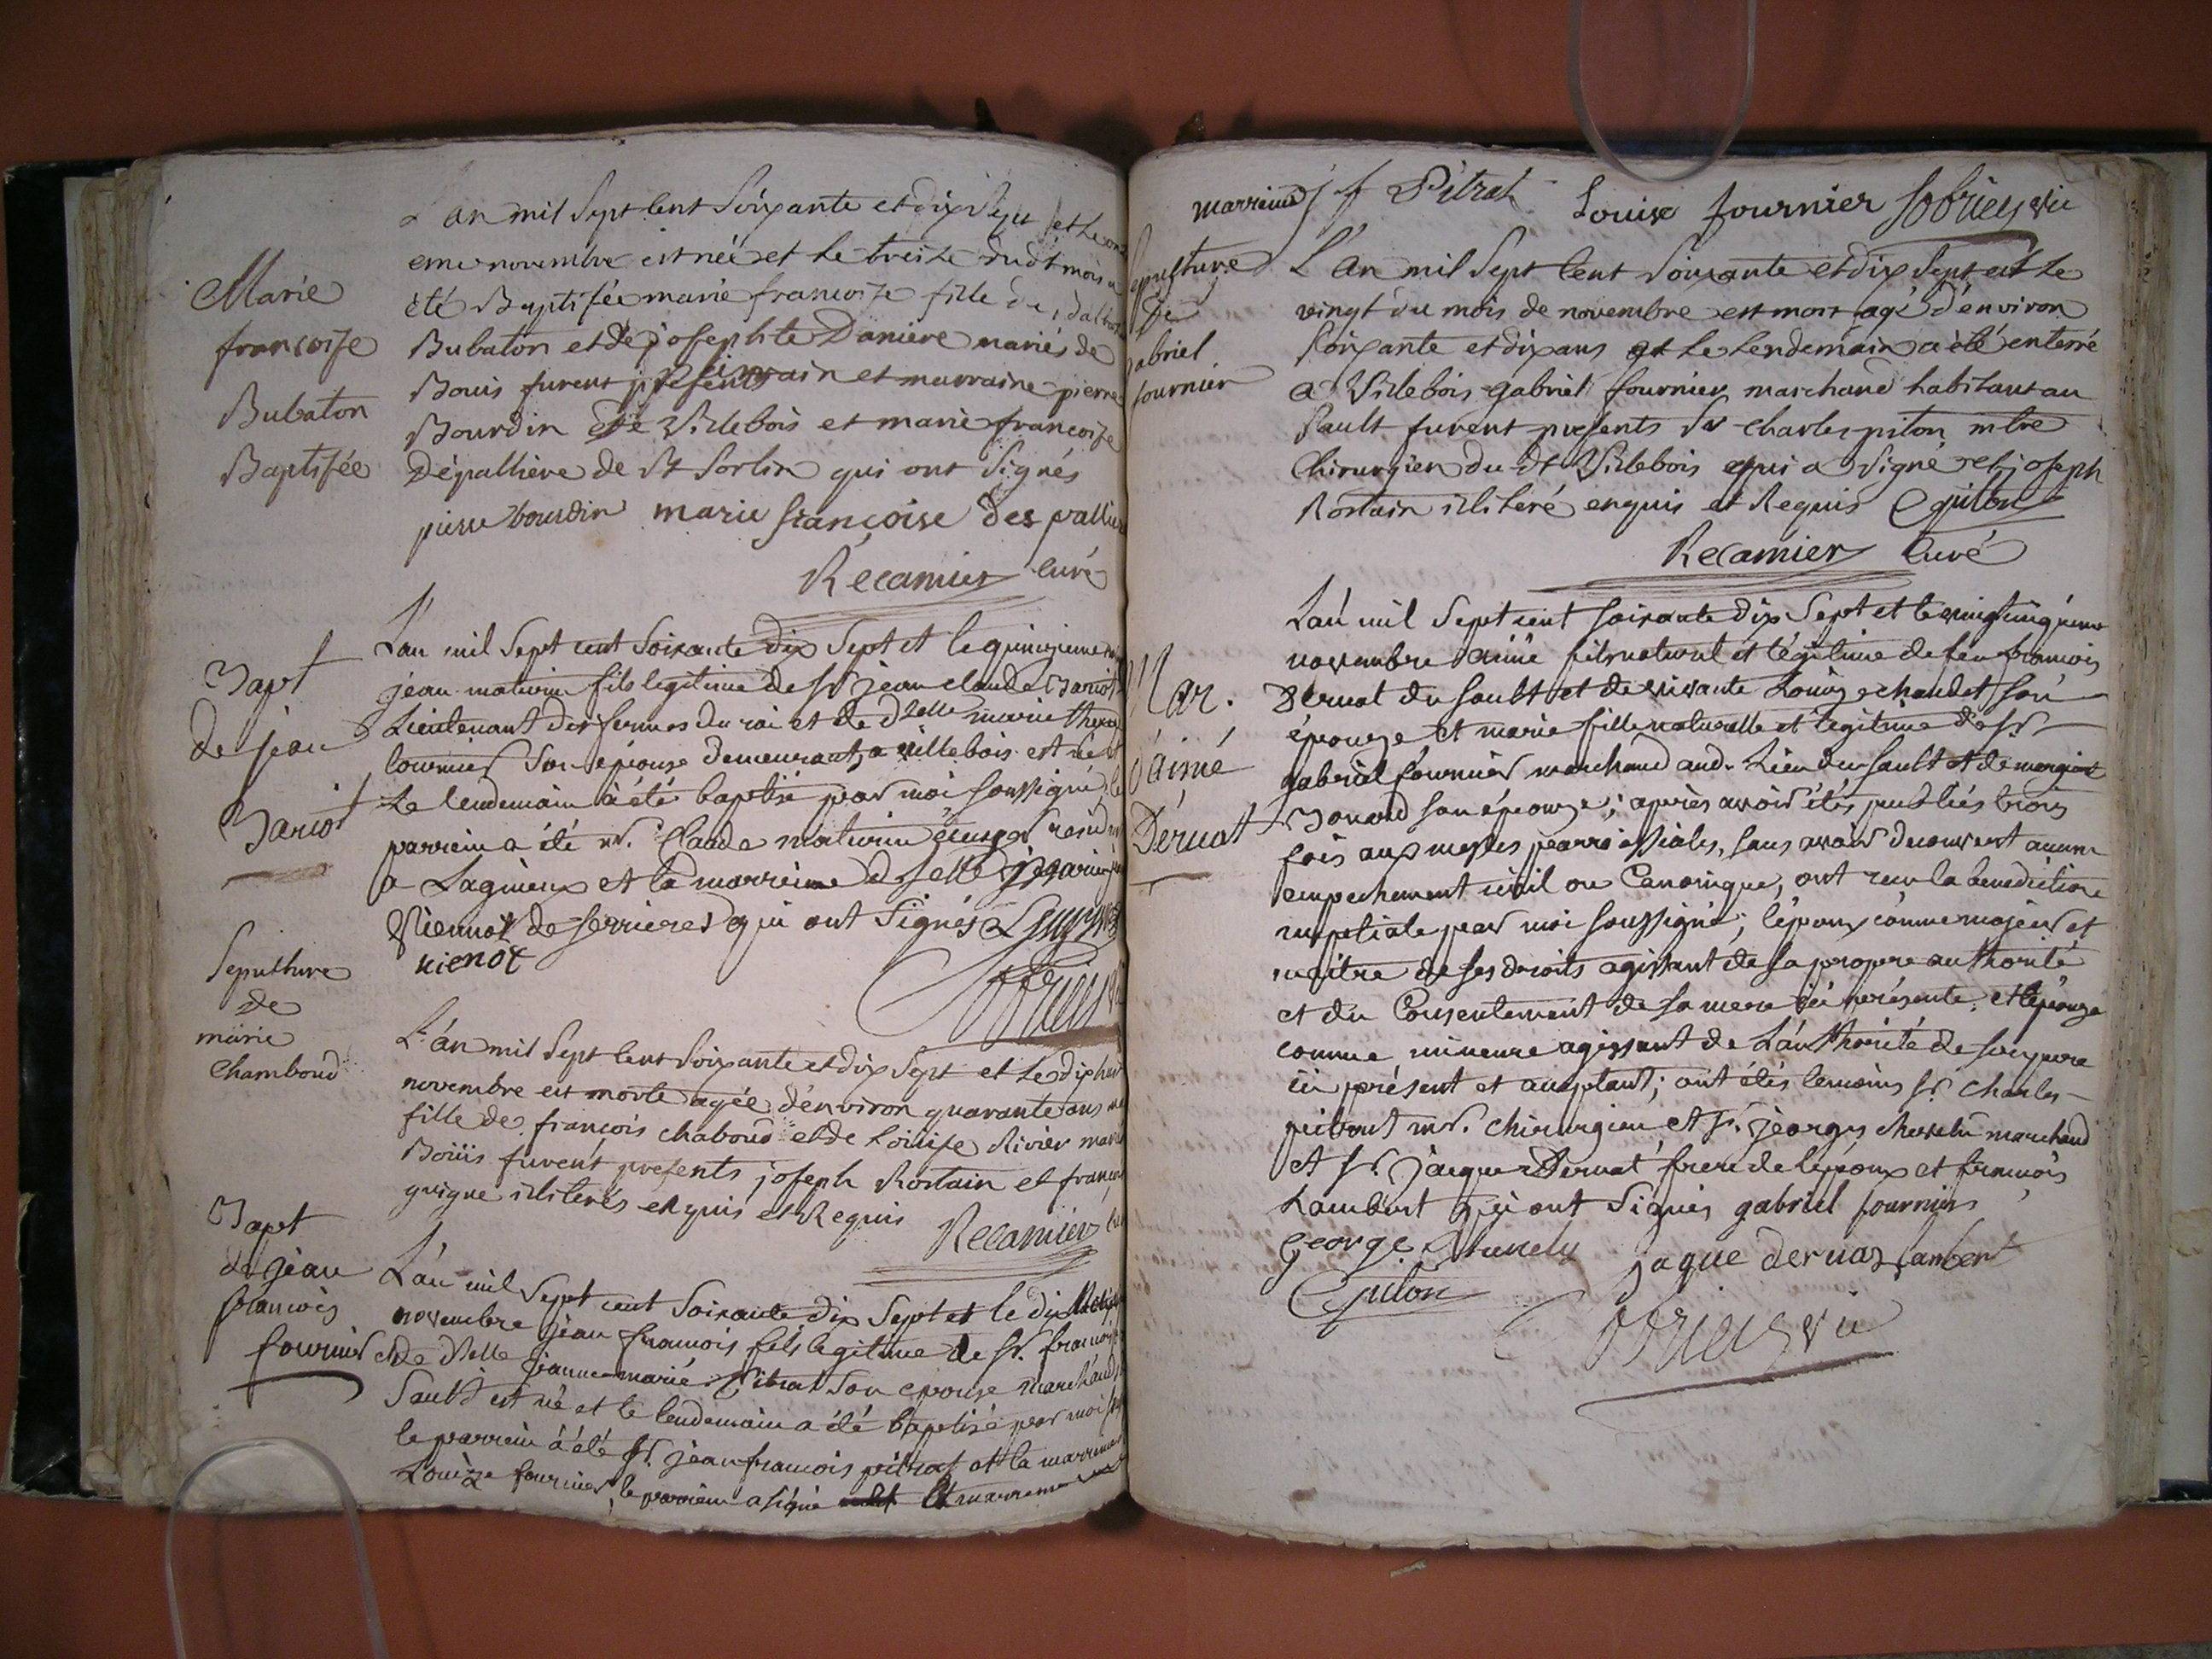 Marie
francoise
Bubaton
Baptisée
L'an mil sept cent soixante et dix sept et le onz
eme novembre est née et le treize dudt mois a
été Baptisée marie francoise fille de
Bubaton et de josephte Daniere mariés de
Bouis furent presents parrain et marraine pierre
Bourdin de Villebois et marie francoise
Dépallière de St Sorlin qui ont signés
pierre bourdin marie françoise des pallier
Recamier curé
Bapt
de jean
Bariot
L'an mil sept cent soixante dix sept et le quinzieme
jean maturin fils legitime de sr jean claude Bariot
Lieutenant des fermes du roi et de dlle marie therese
fournier son épouse demeurant a villebois est né et
le lendemain à été baptisé par moi soussigné le
parrein a été mr. Claude maturin
a Lagnieux et la marreine
Viennot de serrieres qui ont signés
vienot
Sepulture
de
marie
Chamboud
L'an mil sept cent soixante et dix sept et le dix huit
novembre est morte agée d'environ quarante ans
fille de françois chaboud et de Louise Rivier mariés
Boüis furent presents joseph Rostain et francois
guigue illiterés enquis et Requis Recamier curé
Bapt
de jean
francois
fournier
L'an mil sept cent soixante dix sept et le dix
novembre jean francois fils legitime de sr. francois
et de dlle jeanne marie Pitrat son epouse marchand
Sault est né et le lendemain a été baptisé par moi
le parrein à été sr. jean francois pitrat et la marreine
Louize fournier, le parrein a signé et la marreine
marreine j f Pitrat Louise fournier
sepulture
de
gabriel
fournier
L'an mil sept cent soixante et dix sept et le
vingt du mois de novembre est mort agé d'environ
soixante et dix ans et le lendemain a été enterré
a Villebois gabriel fournier marchand habitant au
Sault furent presents sr charles piton mtre
Chirurgien du dt Villebois qui a signé et joseph
Rostain illiteré enquis et Requis Cpiton
Recamier Curé
Mar.
d'aimé
Dervat
L'an mil sept cent soixante dix sept et le vingt cinquieme
novembre aimé fils naturel et légitime de feu francois
Dervat du sault et de vivante Louize chaudet son
épouze et marie fille naturelle et legitime de sr.
gabriel fournier marchand aud. Lieu du sault et de
Bonard son épouze; après avoir étés publiés trois
fois aux messes parroissiales, sans avoir decouvert aucun
empechement civil ou Canonique, ont reçu la benediction
nuptiale par moi soussigné; l'époux comme majeur et
maitre de ses droits agissant de sa propre authorité
et du Consentement de sa mere ici présente, et l'épouze
comme mineure agissant de L'authorité de son pere
ici présent et acceptant; ont étés temoins sr. Charles
mr. chirurgien et sr. jeorges marchand
et sr. jacque Dervat frere de l'époux et francois
Lambert qui ont signés gabriel fournier
george jaque dervaz lambert
Cpiton